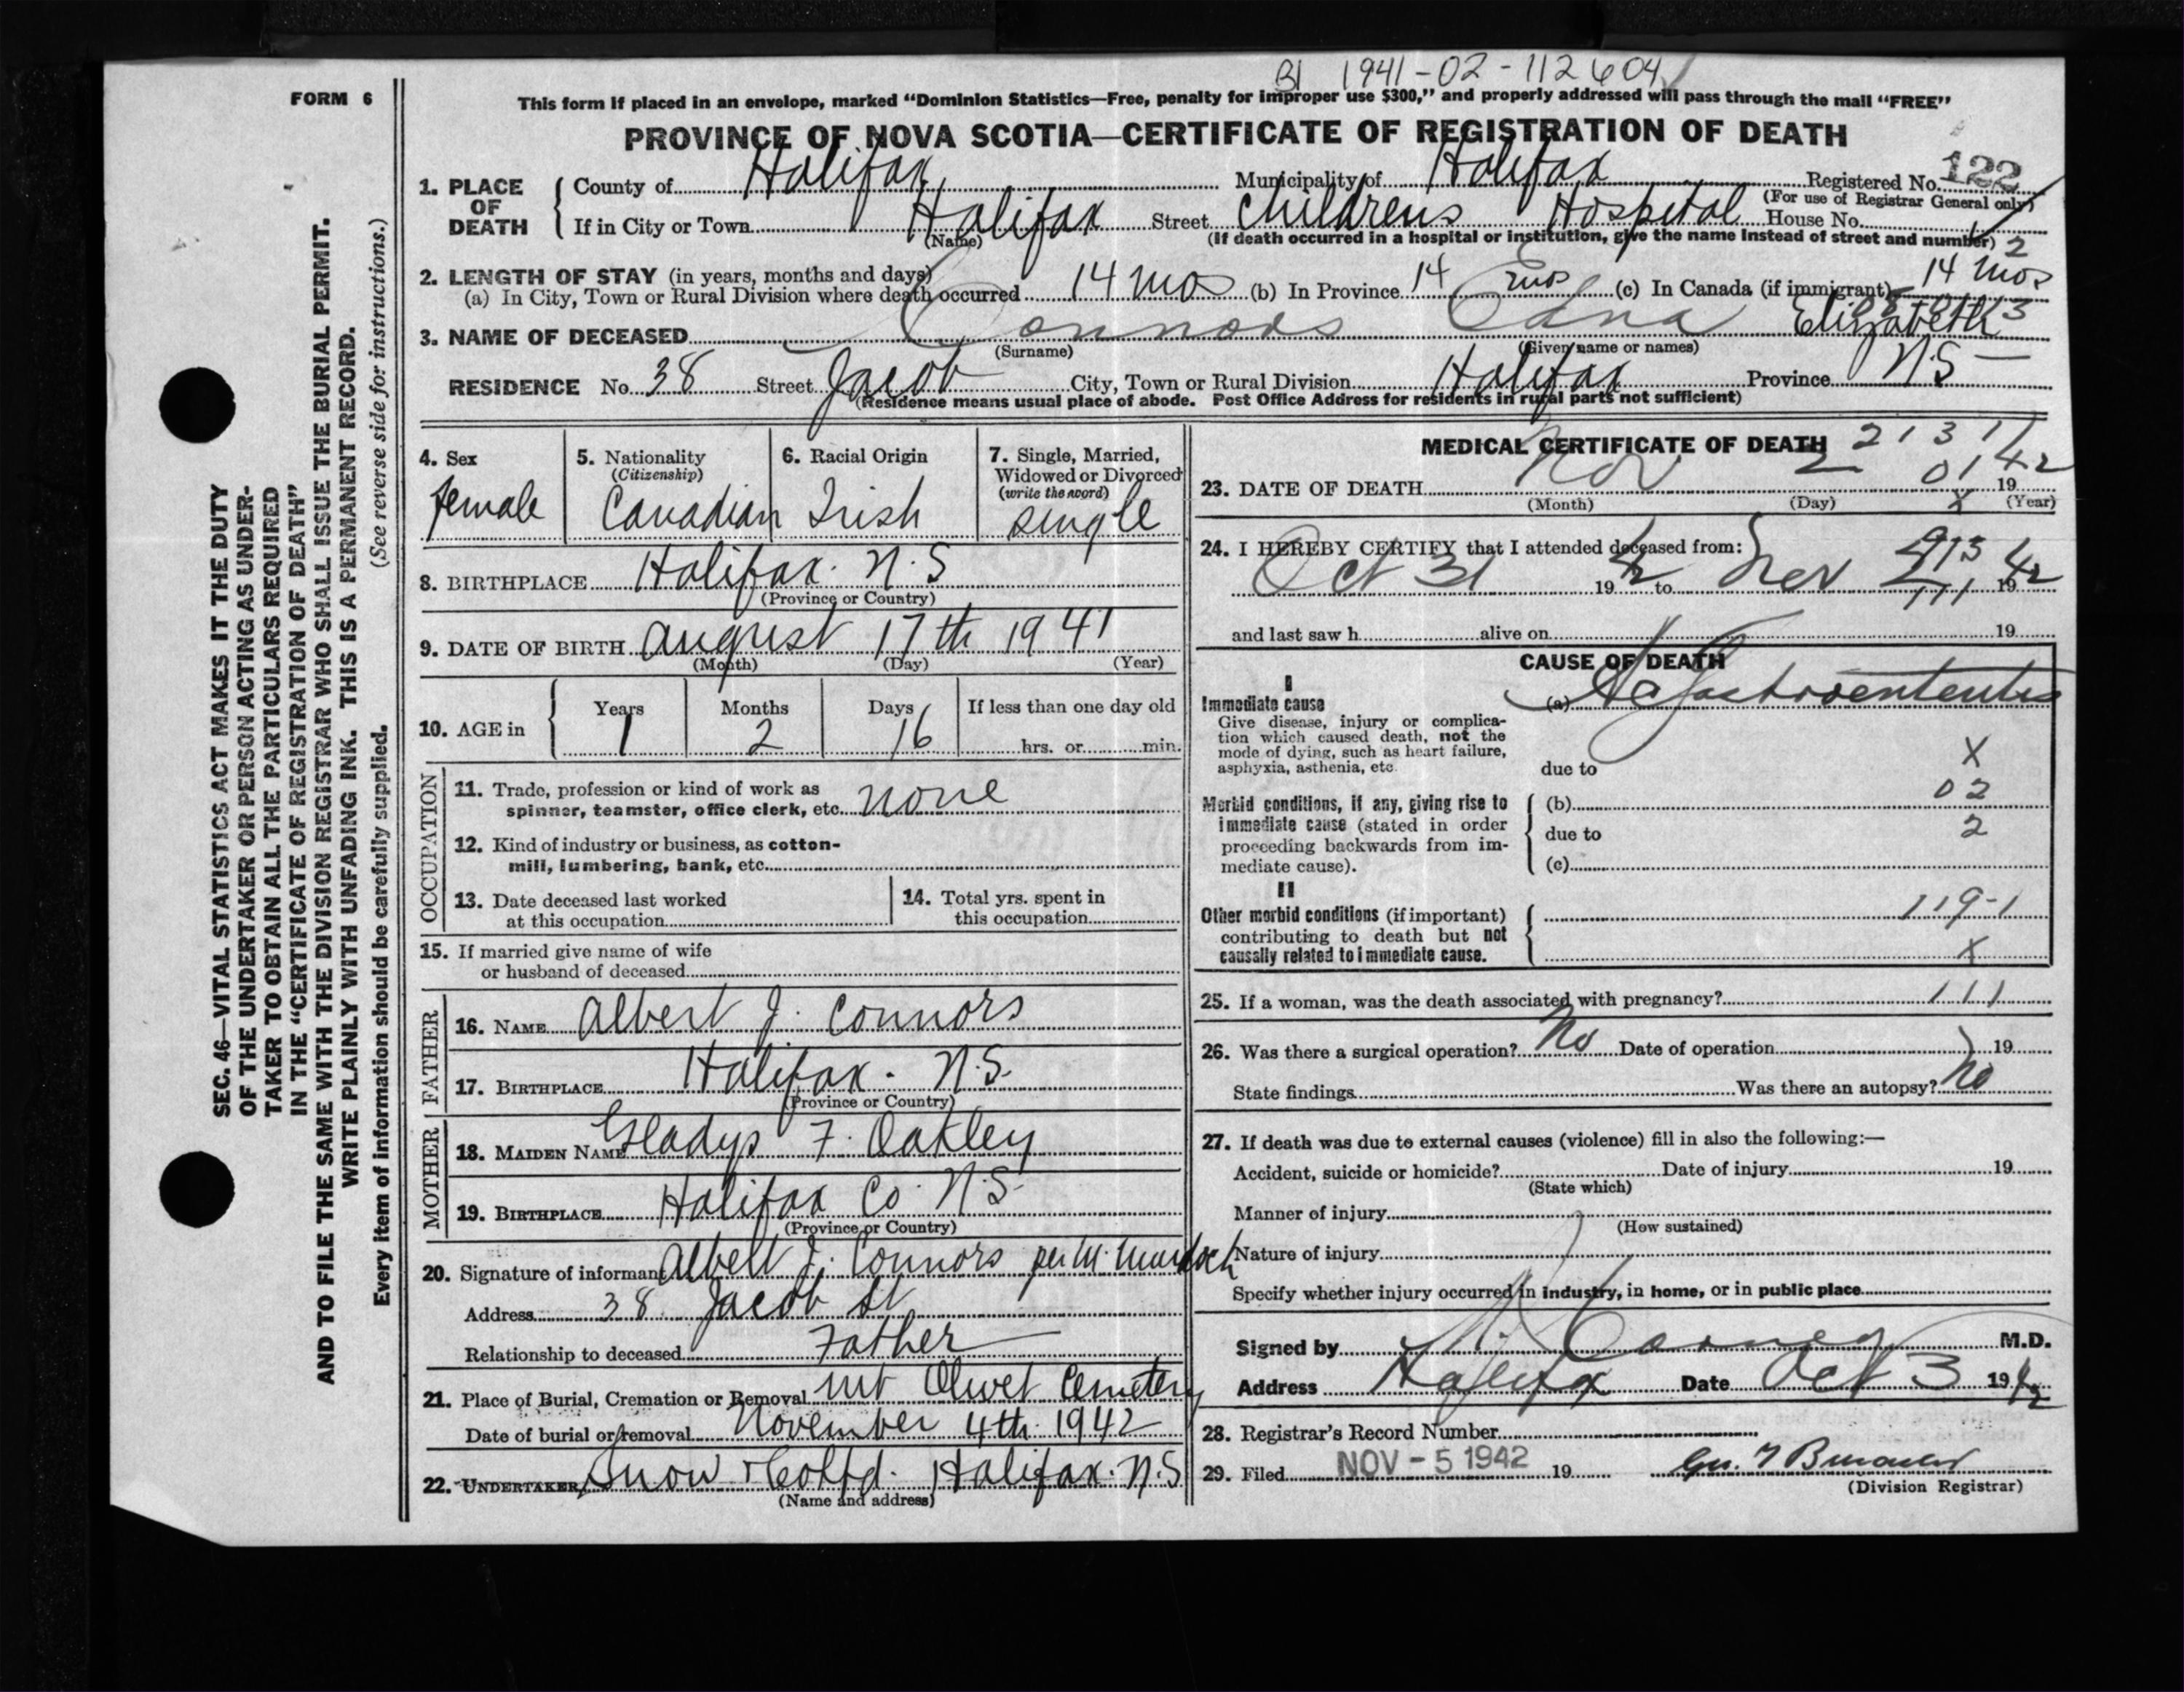 BI 1941-02-112604
FORM 6
This form if placed in an envelope, marked "Dominion Statistics—Free, penalty for improper use $300," and properly addressed will pass through the mail "FREE"
PROVINCE OF NOVA SCOTIA—CERTIFICATE OF REGISTRATION OF DEATH
1. PLACE OF DEATH County of Halifax Municipality of Halifax Registered No. 122
(For use of Registrar General only)
If in City or Town Halifax Street Childrens Hospital House No.
(Name) (If death occurred in a hospital or institution, give the name instead of street and number) 2
2. LENGTH OF STAY (in years, months and days)
(a) In City, Town or Rural Division where death occurred 14 mos (b) In Province 14 mos (c) In Canada (if immigrant) 14 mos
3. NAME OF DECEASED Connors Edna Elizabeth
(Surname) (Given name or names)
RESIDENCE No. 38 Street Jacob City, Town or Rural Division Halifax Province N.S —
(Residence means usual place of abode. Post Office Address for residents in rural parts not sufficient)
4. Sex female
5. Nationality (Citizenship) Canadian
6. Racial Origin Irish
7. Single, Married, Widowed or Divorced (write the word) single
8. BIRTHPLACE Halifax. N.S
(Province or Country)
9. DATE OF BIRTH August 17th 1941
(Month) (Day) (Year)
10. AGE in Years 1 Months 2 Days 16 If less than one day old hrs. or min.
OCCUPATION
11. Trade, profession or kind of work as spinner, teamster, office clerk, etc. none
12. Kind of industry or business, as cotton-mill, lumbering, bank, etc.
13. Date deceased last worked at this occupation
14. Total yrs. spent in this occupation
15. If married give name of wife or husband of deceased
FATHER
16. NAME Albert J. Connors
17. BIRTHPLACE Halifax. N.S.
(Province or Country)
MOTHER
18. MAIDEN NAME Gladys F. Oakley
19. BIRTHPLACE Halifax Co. N.S.
(Province or Country)
20. Signature of informant Albert J. Connors per M. Murdoch
Address 38 Jacob St.
Relationship to deceased Father
21. Place of Burial, Cremation or Removal Mt Olivet Cemetery
Date of burial or removal November 4th 1942
22. UNDERTAKER Snow & Co Ltd. Halifax. N.S
(Name and address)
MEDICAL CERTIFICATE OF DEATH 2131
23. DATE OF DEATH Nov 2 01 1942
(Month) (Day) X (Year)
24. I HEREBY CERTIFY that I attended deceased from:
Oct 31 1942 to Nov 2 1942
111
and last saw h alive on 19
CAUSE OF DEATH
I
Immediate cause (a) Ac Gastroenteritis
Give disease, injury or complication which caused death, not the mode of dying, such as heart failure, asphyxia, asthenia, etc.
X
due to
02
Morbid conditions, if any, giving rise to immediate cause (stated in order proceeding backwards from immediate cause).
(b)
due to 2
(c)
II
Other morbid conditions (if important) contributing to death but not causally related to immediate cause.
119-1
X
25. If a woman, was the death associated with pregnancy? 111
26. Was there a surgical operation? No Date of operation 19
State findings Was there an autopsy? No
27. If death was due to external causes (violence) fill in also the following:—
Accident, suicide or homicide? Date of injury 19
(State which)
Manner of injury
(How sustained)
Nature of injury
Specify whether injury occurred in industry, in home, or in public place
Signed by M.D.
Address Halifax Date Oct 3 1942
28. Registrar's Record Number
29. Filed NOV - 5 1942 19
(Division Registrar)
SEC. 46—VITAL STATISTICS ACT MAKES IT THE DUTY
OF THE UNDERTAKER OR PERSON ACTING AS UNDER-
TAKER TO OBTAIN ALL THE PARTICULARS REQUIRED
IN THE "CERTIFICATE OF REGISTRATION OF DEATH"
AND TO FILE THE SAME WITH THE DIVISION REGISTRAR WHO SHALL ISSUE THE BURIAL PERMIT.
WRITE PLAINLY WITH UNFADING INK. THIS IS A PERMANENT RECORD.
Every item of information should be carefully supplied. (See reverse side for instructions.)